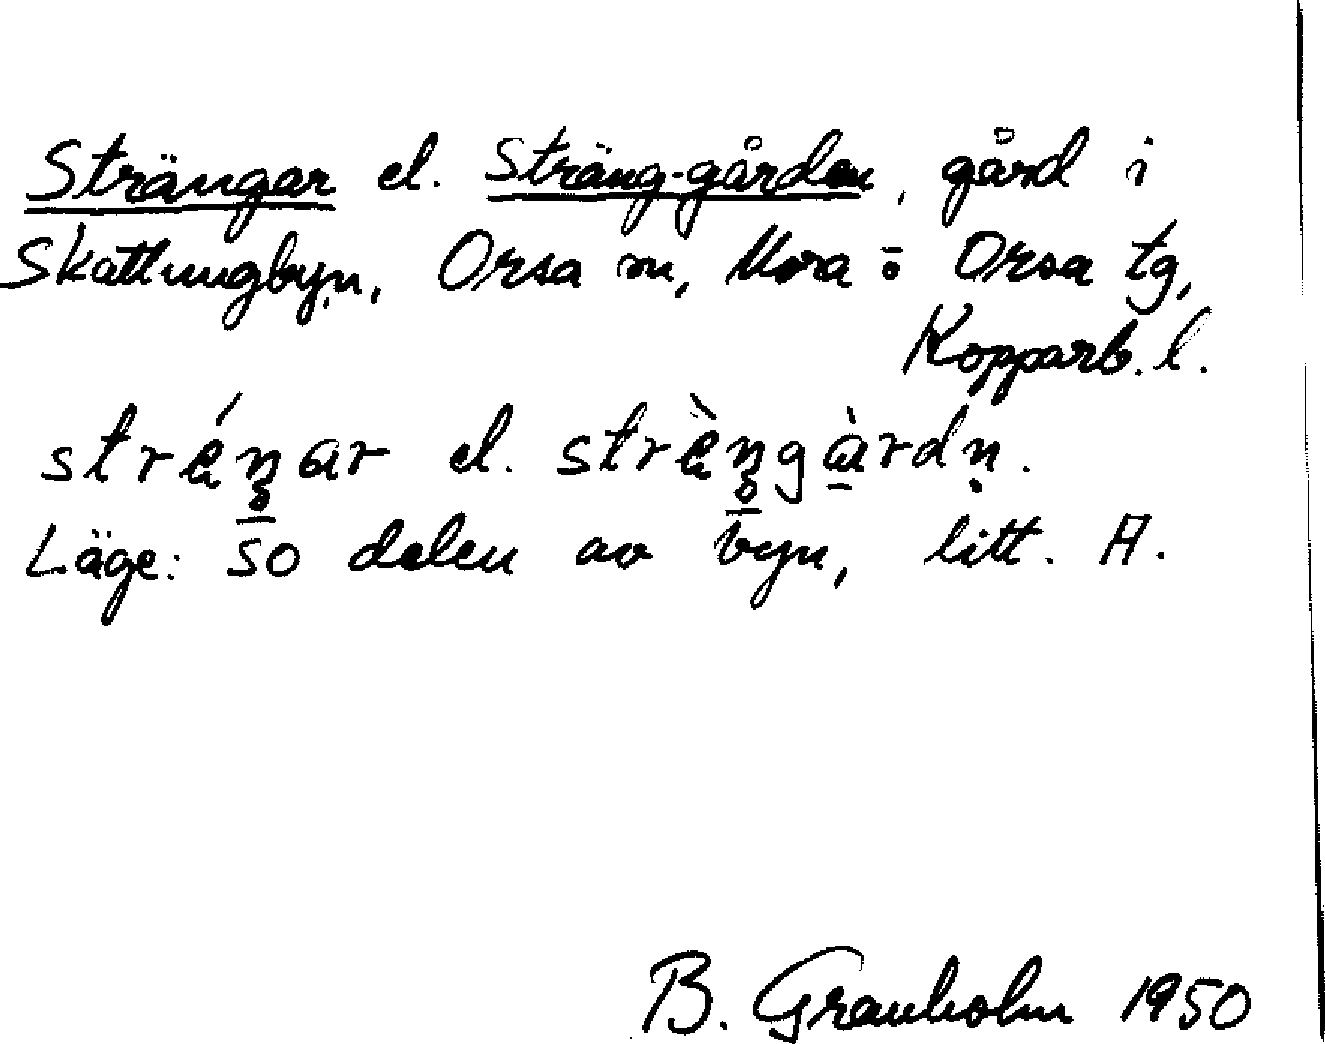 Strängar el. Sträng-gården, gård i
Skattungbyn, Orsa sn, Mora o Orsa tg,
Kopparb. l.
el.
Läge: SO delen av byn, litt. A.
B. Granholm 1950